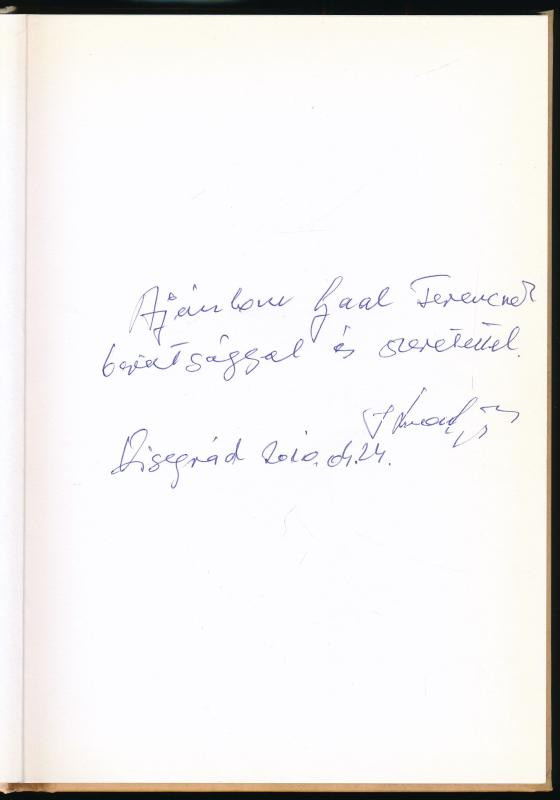 Ajánlom Gaal Ferencnek
barátsággal és szeretettel.
Visegrád 2010. 04. 24.